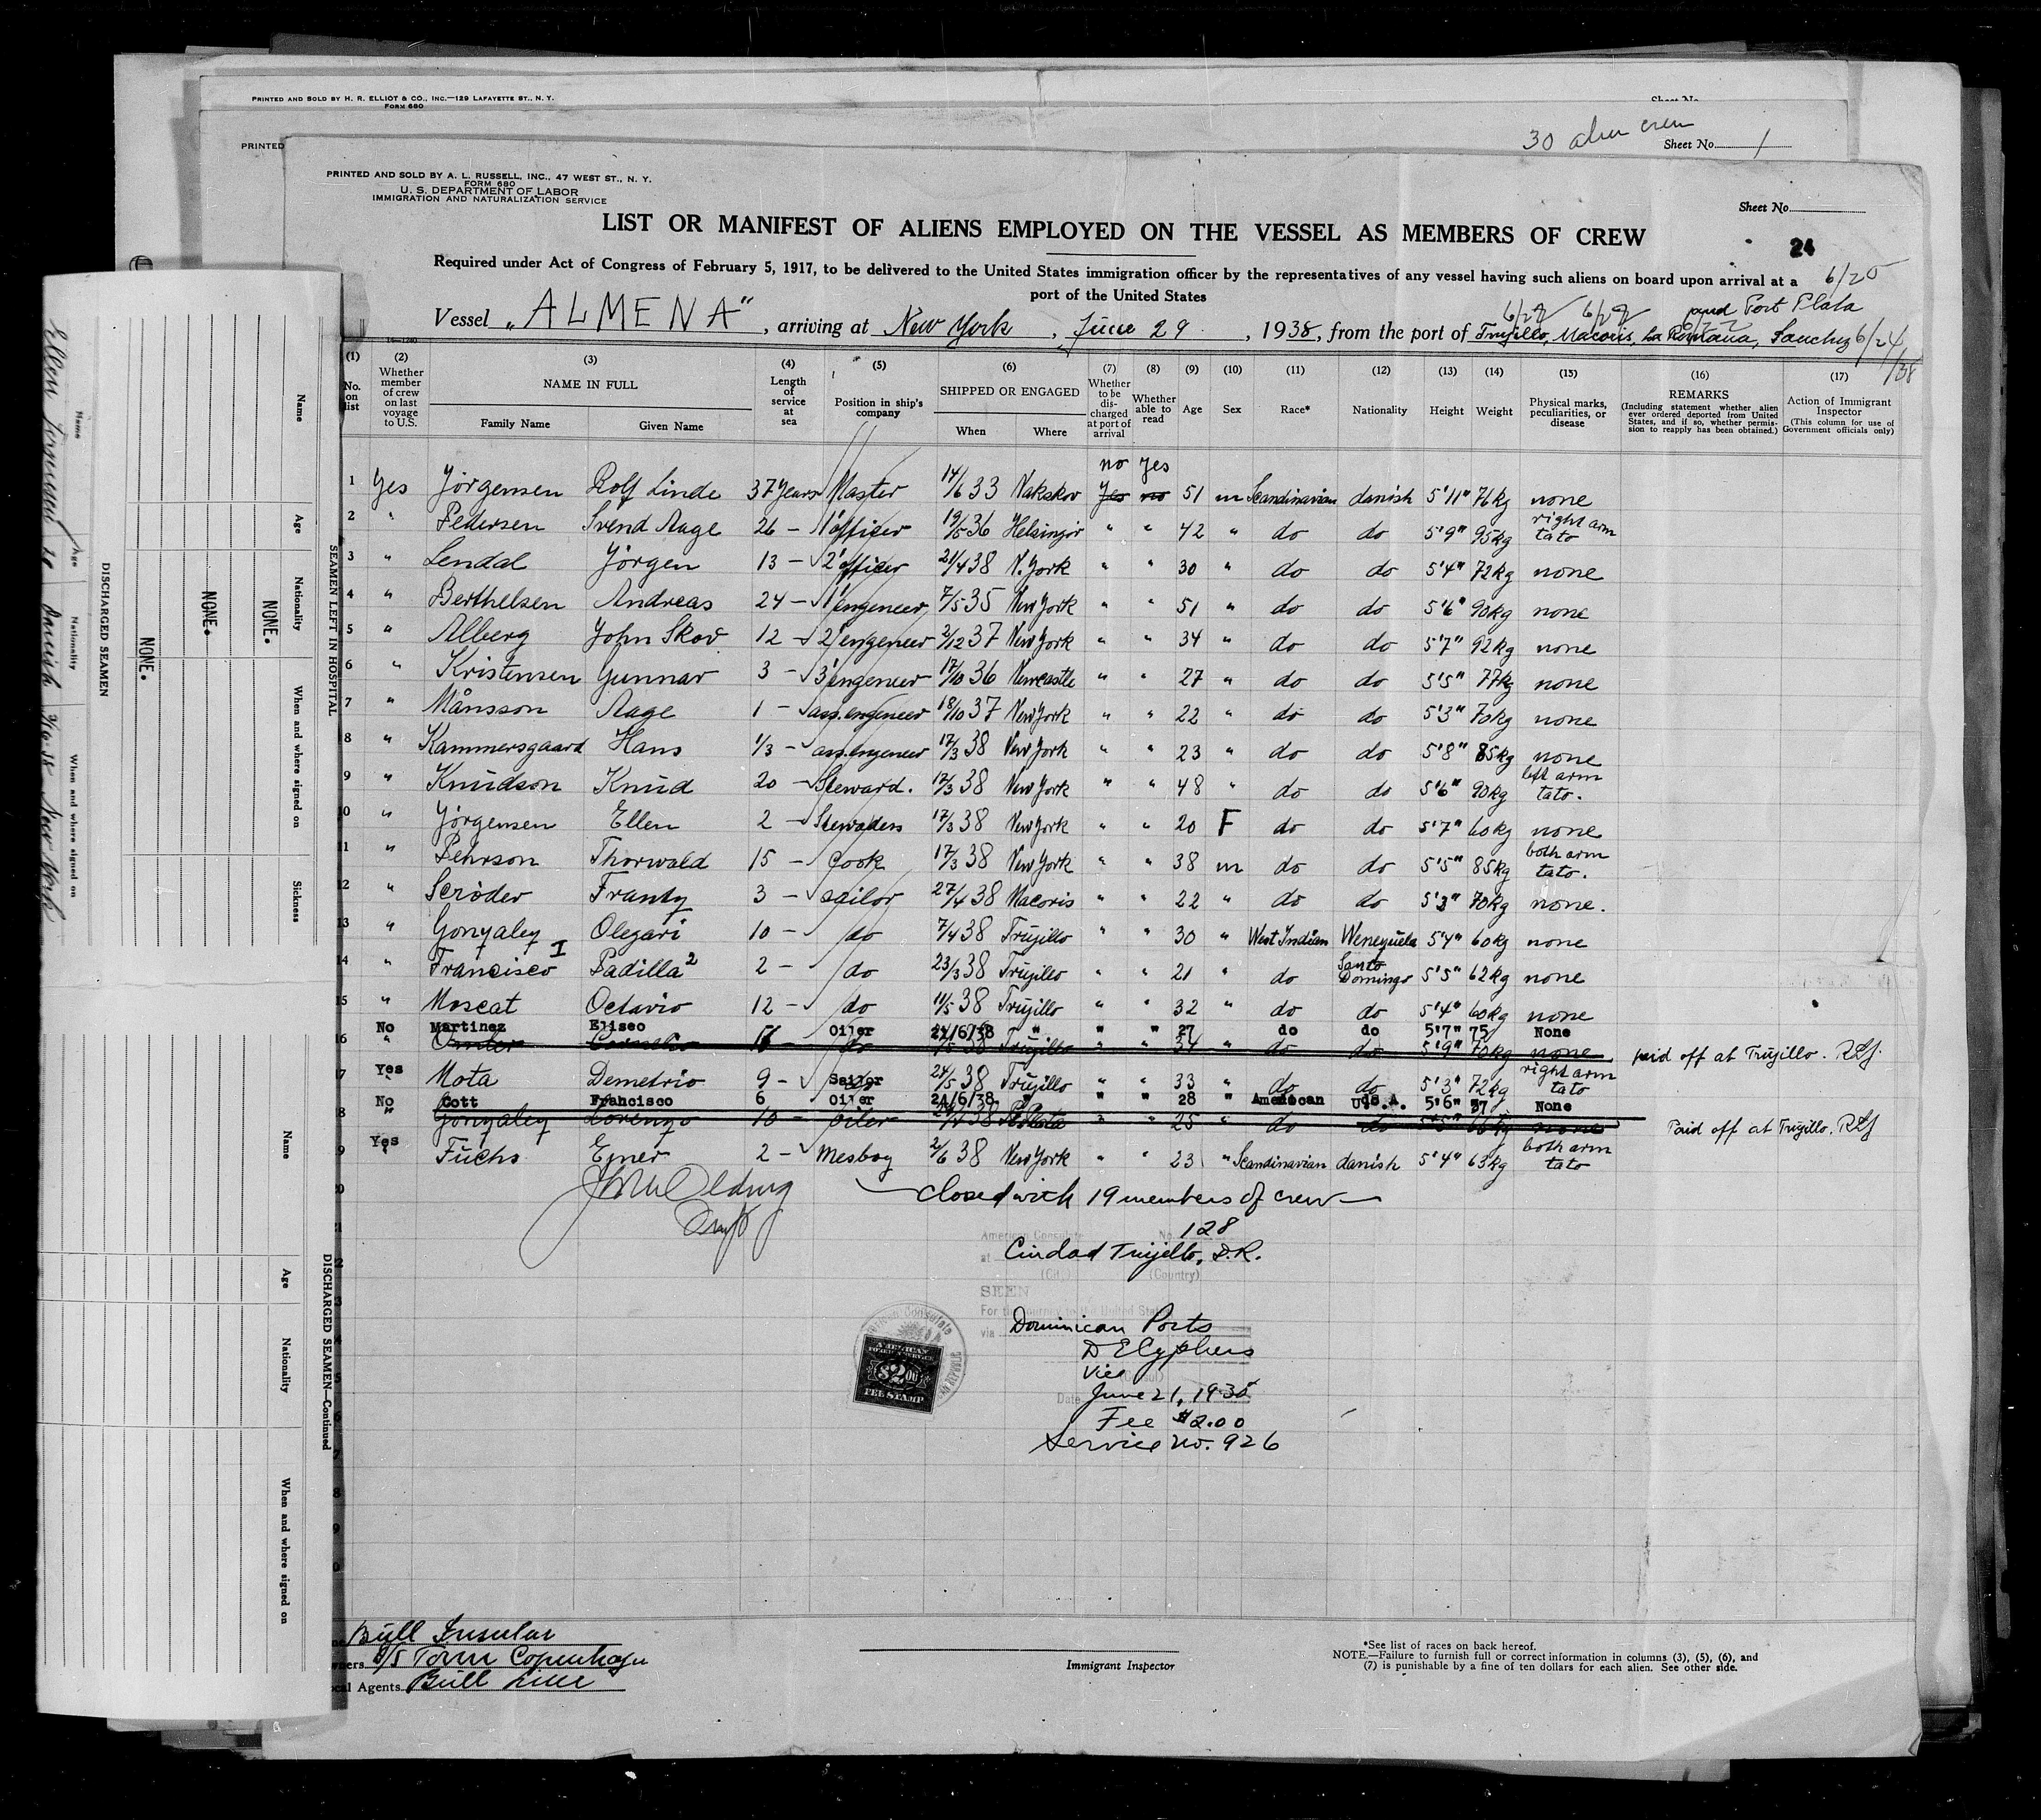 PRINTED AND SOLD BY H. R. ELLIOT & CO., INC.—129 LAFAYETTE ST., N. Y.
FORM 680
Sheet No.
30 alien crew
PRINTED
Sheet No. 1
PRINTED AND SOLD BY A. L. RUSSELL, INC., 47 WEST ST., N. Y.
FORM 680
U. S. DEPARTMENT OF LABOR
IMMIGRATION AND NATURALIZATION SERVICE
Sheet No.
LIST OR MANIFEST OF ALIENS EMPLOYED ON THE VESSEL AS MEMBERS OF CREW
24
Required under Act of Congress of February 5, 1917, to be delivered to the United States immigration officer by the representatives of any vessel having such aliens on board upon arrival at a
port of the United States
6/25
and Port Plata
Vessel „ALMENA“, arriving at New York, June 29, 1938, from the port of Trujillo, Macoris, La Romana, Sanchez 6/24/38
(1) (2) (3) (4) (5) (6) (7) (8) (9) (10) (11) (12) (13) (14) (15) (16) (17)
No. on list
Whether member of crew on last voyage to U.S.
NAME IN FULL
Family Name Given Name
Length of service at sea
Position in ship's company
SHIPPED OR ENGAGED
When Where
Whether to be discharged at port of arrival
Whether able to read
Age
Sex
Race*
Nationality
Height
Weight
Physical marks, peculiarities, or disease
REMARKS
(Including statement whether alien ever ordered deported from United States, and if so, whether permission to reapply has been obtained.)
Action of Immigrant Inspector
(This column for use of Government officials only)
no yes
1 Yes Jörgensen Rolf Linde 37 Years Master 14/6 33 Nakskov Yes no 51 m Scandinavian danish 5'11" 76kg none
2 " Pedersen Svend Aage 26 - 1' officer 19/5 36 Helsingör " " 42 " do do 5'9" 95kg right arm tato
3 " Lendal Jörgen 13 - 2' officer 21/4 38 N. York " " 30 " do do 5'4" 72kg none
4 " Berthelsen Andreas 24 - 1' engeneer 7/5 35 New York " " 51 " do do 5'6" 90kg none
5 " Alberg John Skov 12 - 2' engeneer 2/12 37 New York " " 34 " do do 5'7" 92kg none
6 " Kristensen Gunnar 3 - 3' engeneer 17/10 36 Newcastle " " 27 " do do 5'5" 77kg none
7 " Månsson Aage 1 - ass. engeneer 18/10 37 New York " " 22 " do do 5'3" 70kg none
8 " Kammersgaard Hans 1/3 - ass. engeneer 17/3 38 New York " " 23 " do do 5'8" 85kg none
9 " Knudson Knud 20 - Steward. 17/3 38 New York " " 48 " do do 5'6" 90kg left arm tato.
10 " Jörgensen Ellen 2 - 17/3 38 New York " " 20 F do do 5'7" 60kg none
11 " Pehrson Thorwald 15 - cook 17/3 38 New York " " 38 m do do 5'5" 85kg both arm tato.
12 " Scröder Frantz 3 - sailor 27/4 38 Macoris " " 22 " do do 5'3" 70kg none.
13 " Gonzalez Olegari 10 - do 7/4 38 Trujillo " " 30 " West Indian Wenezuela 5'4" 60kg none
14 " Francisco I Padilla 2 2 - do 23/3 38 Trujillo " " 21 " do Santo Domingo 5'5" 62kg none
15 " Moscat Octavio 12 - do 11/5 38 Trujillo " " 32 " do do 5'4" 60kg none
No Martinez Eliseo Oiler 21/6/38 " " " 27 do do 5'7" 75 None
16 " do 38 Trujillo " " 34 " do do 5'9" 70kg none paid off at Trujillo.
17 Yes Mota Demetrio 9 - Sailor 24/5 38 Trujillo " " 33 " do do 5'3" 72kg right arm tato
No Cott Francisco 6 Oiler 21/6/38 " " " 28 American U.S.A. 5'6" 57 None
18 " Gonzalez Lorenzo 10 - oiler 38 " " 25 " do do none Paid off at Trujillo.
19 Yes Fuchs Ejner 2 - Mesboy 2/6 38 New York " " 23 " Scandinavian danish 5'4" 63kg both arm tato
Closed with 19 members of crew
American Consulate No. 128
at Ciudad Trujillo, D.R.
(City) (Country)
SEEN
For the journey to the United States
via Dominican Ports
D E Cyphers
Vice Consul
Date June 21, 1938
Fee $2.00
Service no. 926
AMERICAN
FOREIGN SERVICE
$2.00
FEE STAMP
Bull Insular
Owners Copenhagen
Local Agents Bull Line
Immigrant Inspector
*See list of races on back hereof.
NOTE.—Failure to furnish full or correct information in columns (3), (5), (6), and
(7) is punishable by a fine of ten dollars for each alien. See other side.
DISCHARGED SEAMEN
Name Age Nationality When and where signed on
Ellen Jorgensen 20 Danish New York
NONE.
NONE.
NONE.
SEAMEN LEFT IN HOSPITAL
Name Age Nationality When and where signed on Sickness
DISCHARGED SEAMEN—Continued
Name Age Nationality When and where signed on